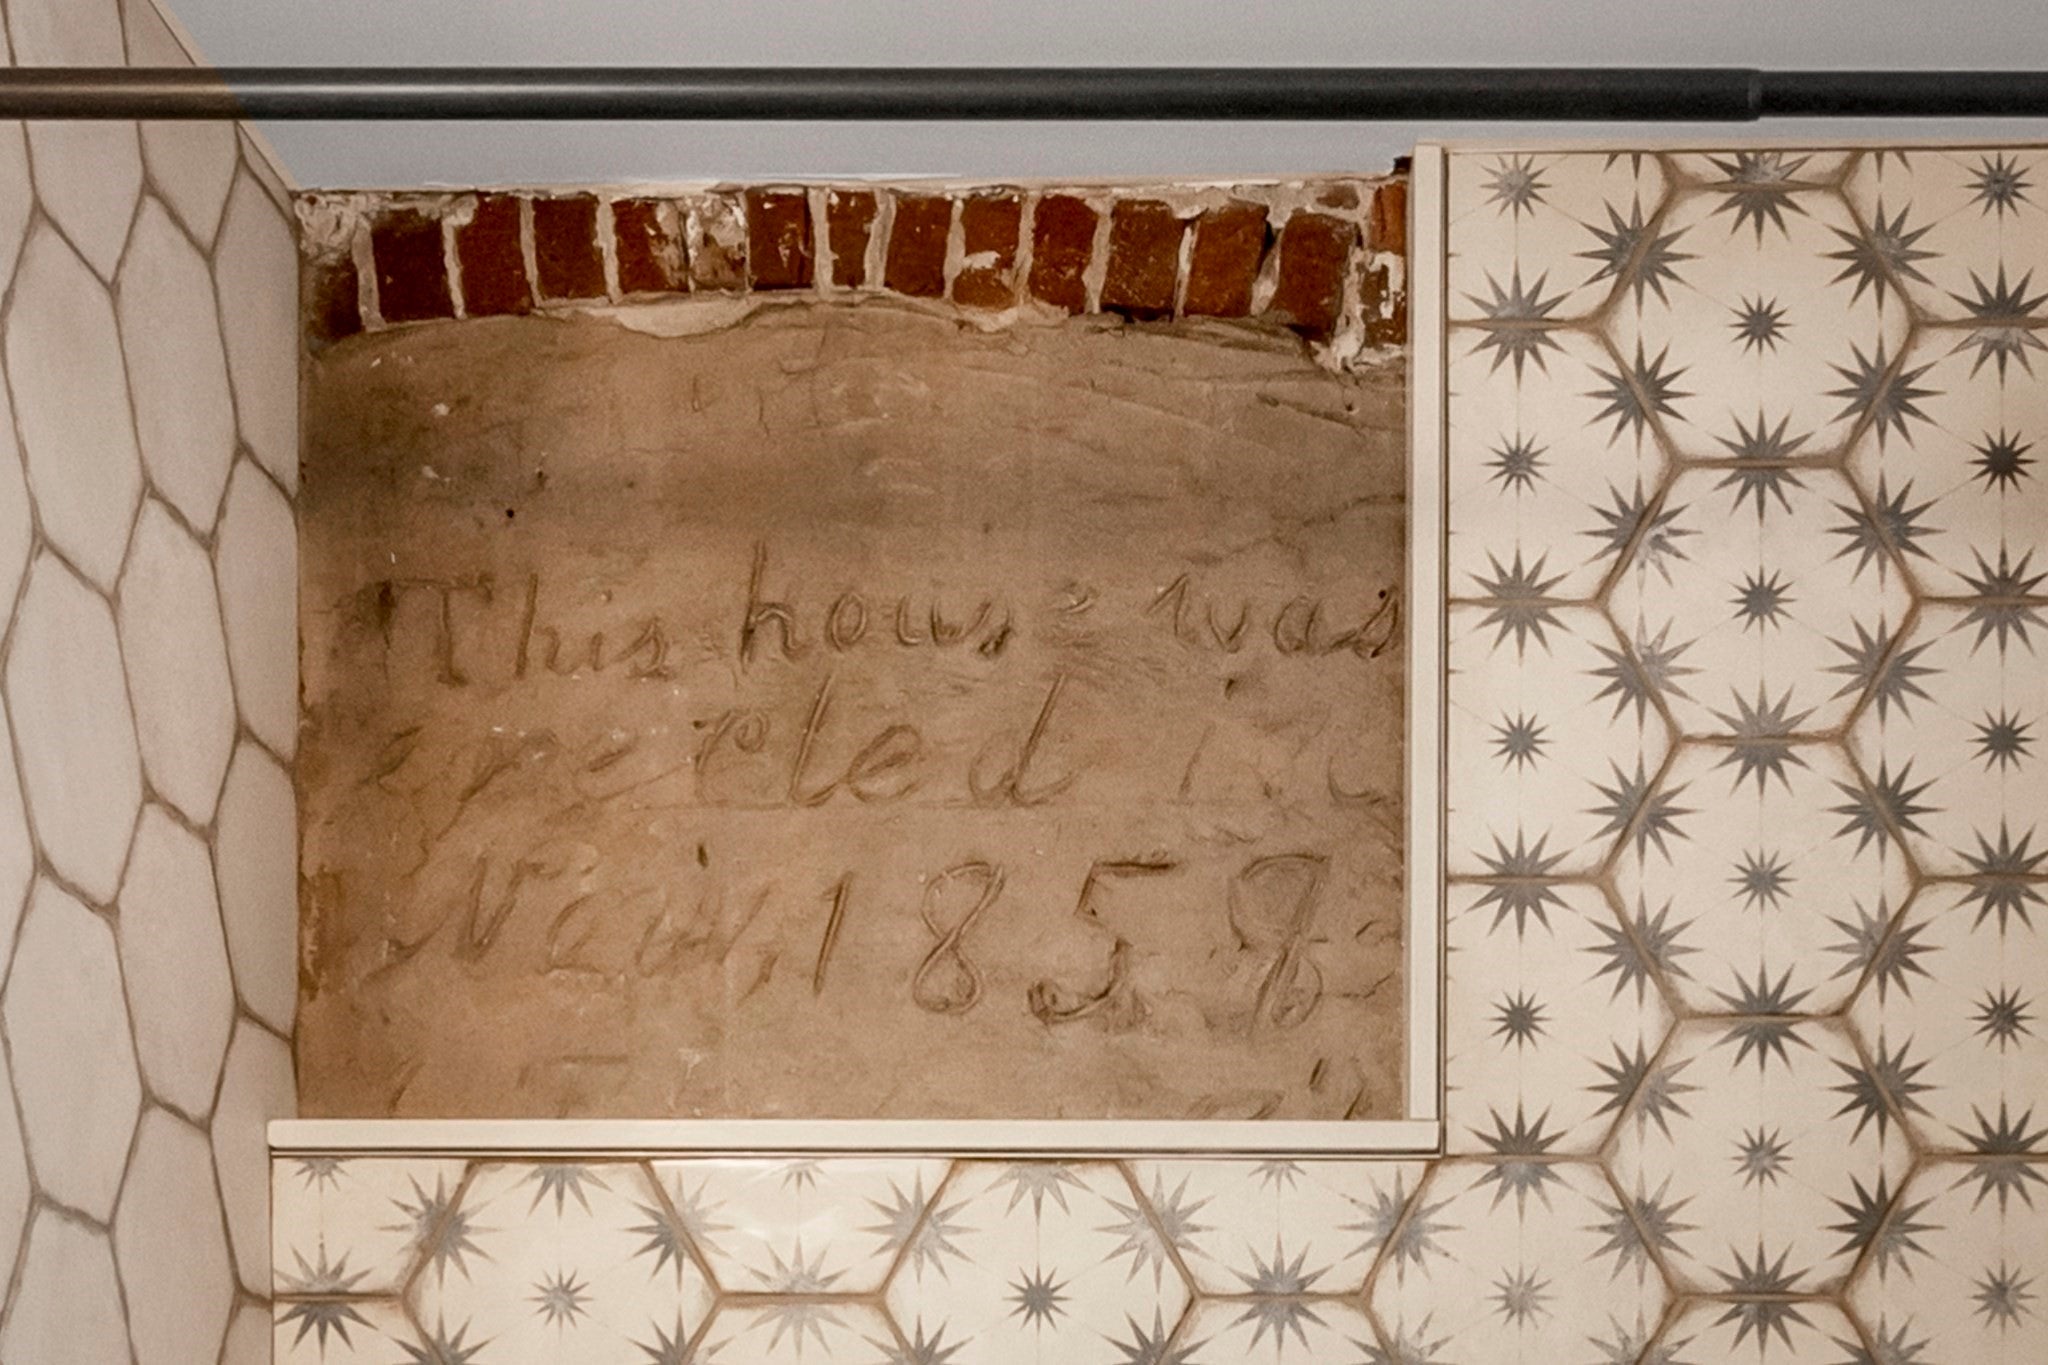 This house was
erected in
Nov, 1858